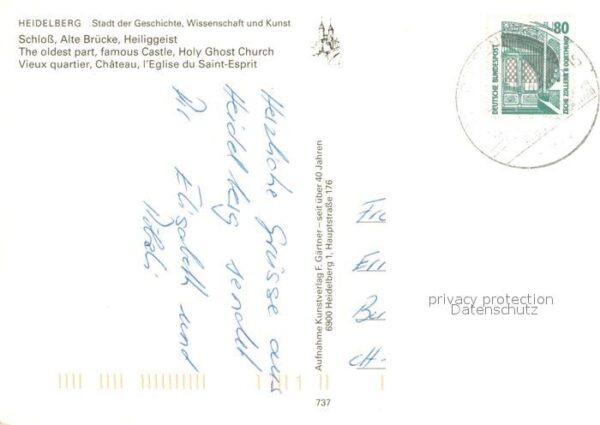 HEIDELBERG Stadt der Geschichte, Wissenschaft und Kunst
Schloß, Alte Brücke, Heiliggeist
The oldest part, famous Castle, Holy Ghost Church
Vieux quartier, Château, l'Eglise du Saint-Esprit
80
DEUTSCHE BUNDESPOST
ZECHE ZOLLERN II DORTMUND
Herzliche Grüsse aus
Heidelberg sendet
Elisabeth und
Aufnahme Kunstverlag F. Gärtner – seit über 40 Jahren
6900 Heidelberg 1, Hauptstraße 176
CH-
privacy protection
Datenschutz
737